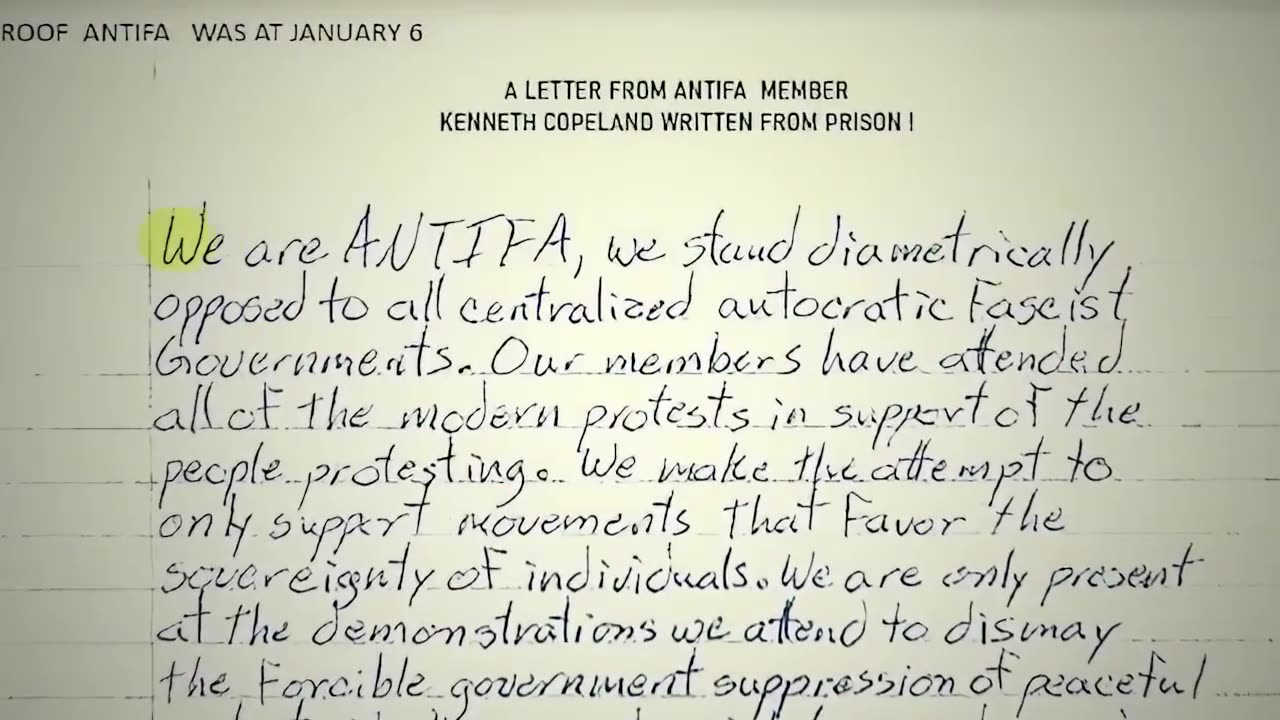 ROOF ANTIFA WAS AT JANUARY 6
A LETTER FROM ANTIFA MEMBER
KENNETH COPELAND WRITTEN FROM PRISON !
We are ANTIFA, we stand diametrically
opposed to all centralized autocratic Fascist
Governments. Our members have attended
all of the modern protests in support of the
people protesting. We make the attempt to
only support movements that Favor the
sovereignty of individuals. We are only present
at the demonstrations we attend to dismay
the Forcible government suppression of peaceful